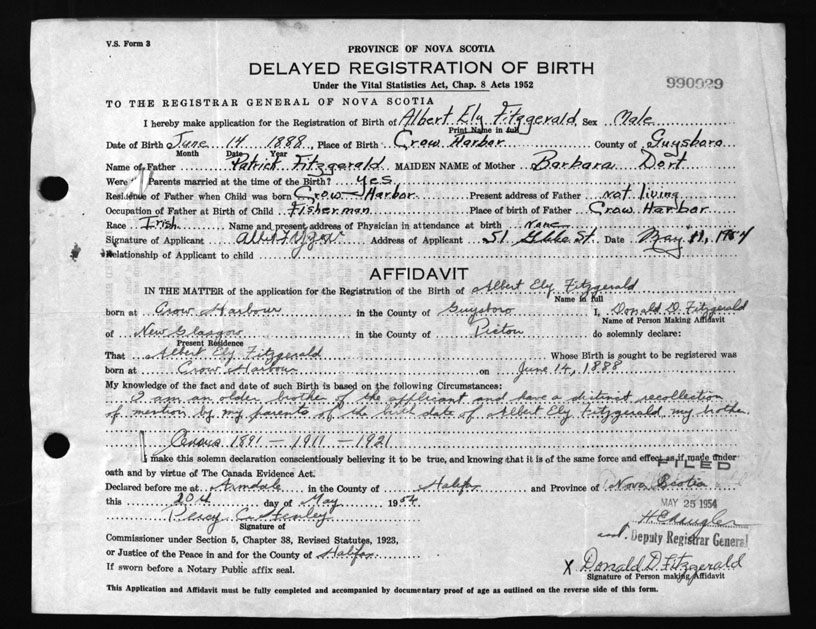 V.S. Form 3
PROVINCE OF NOVA SCOTIA
DELAYED REGISTRATION OF BIRTH
Under the Vital Statistics Act, Chap. 8 Acts 1952
990929
TO THE REGISTRAR GENERAL OF NOVA SCOTIA
I hereby make application for the Registration of Birth of Albert Ely Fitzgerald Sex Male
Print Name in full
Date of Birth June 14 1888, Place of Birth Crow Harbor County of Guysboro
Month Date Year
Name of Father Patrick Fitzgerald MAIDEN NAME of Mother Barbara Dort
Were Parents married at the time of the Birth? Yes
Residence of Father when Child was born Crow Harbor Present address of Father not living
Occupation of Father at Birth of Child Fisherman Place of birth of Father Crow Harbor
Race Irish Name and present address of Physician in attendance at birth None
Signature of Applicant Address of Applicant St. Date May 11, 1954
Relationship of Applicant to child
AFFIDAVIT
IN THE MATTER of the application for the Registration of the Birth of Albert Ely Fitzgerald
Name in full
born at Crow Harbour in the County of Guysboro I, Donald D. Fitzgerald
Name of Person Making Affidavit
of New Glasgow in the County of Pictou do solemnly declare:
Present Residence
That Albert Ely Fitzgerald Whose Birth is sought to be registered was
born at Crow Harbour on June 14, 1888
My knowledge of the fact and date of such Birth is based on the following Circumstances:
I am an older brother of the applicant and have a distinct recollection
of mention by my parents of the birth date of Albert Ely Fitzgerald my brother.
Census 1891 - 1911 - 1921
I make this solemn declaration conscientiously believing it to be true, and knowing that it is of the same force and effect as if made under
oath and by virtue of The Canada Evidence Act.
FILED
Declared before me at Armdale in the County of Halifax and Province of Nova Scotia
this 20th day of May 1954
MAY 25 1954
Percy C.
Signature of
Commissioner under Section 5, Chapter 38, Revised Statutes, 1923,
Deputy Registrar General
or Justice of the Peace in and for the County of Halifax
X Donald D. Fitzgerald
If sworn before a Notary Public affix seal.
Signature of Person making Affidavit
This Application and Affidavit must be fully completed and accompanied by documentary proof of age as outlined on the reverse side of this form.